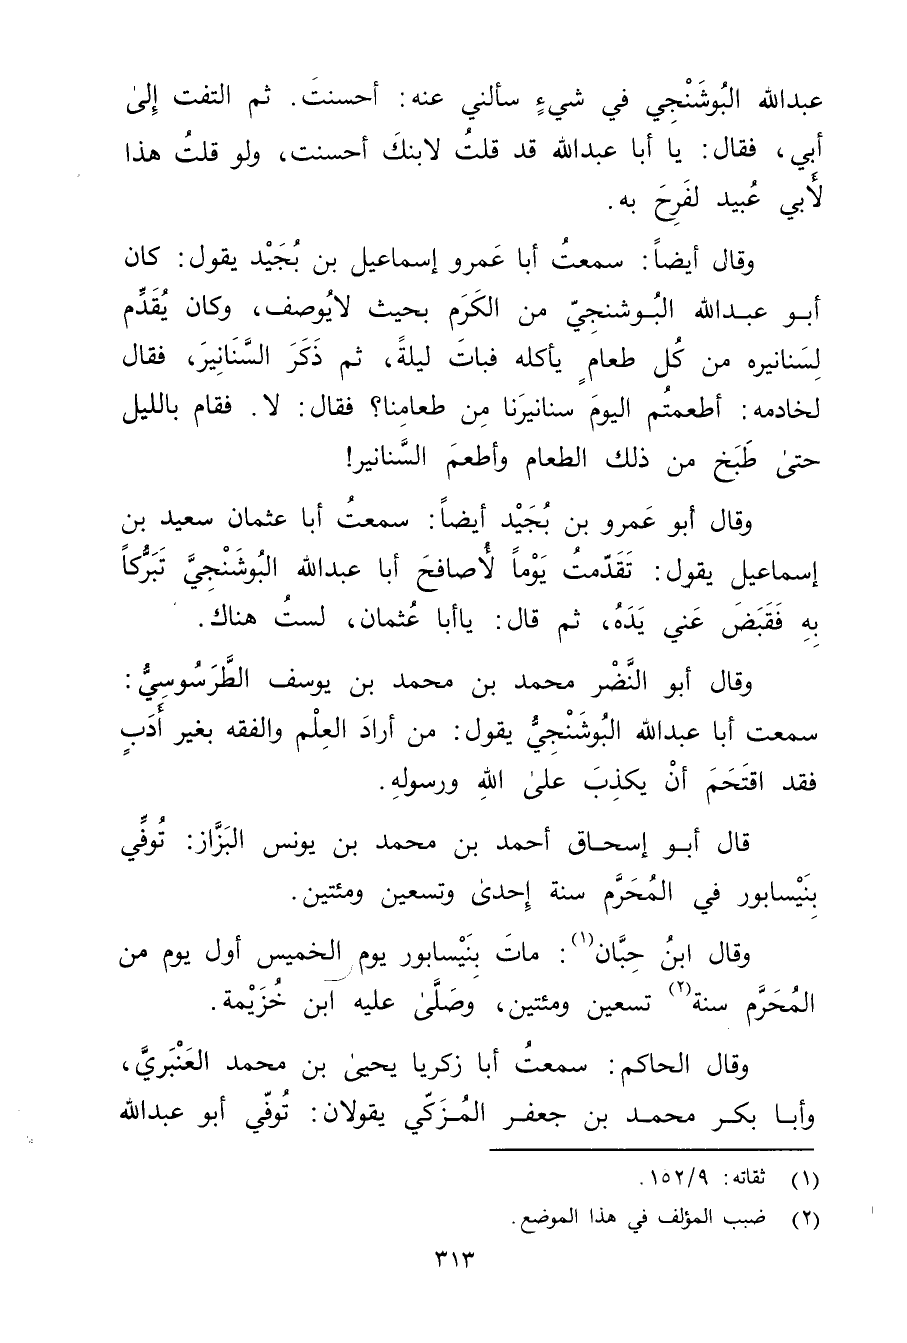 عبدالله البُوشَنْجي في شيءٍ سألني عنه: أحسنتَ. ثم التفت إلىٰ
أبي، فقال: يا أبا عبدالله قد قلتُ لابنكَ أحسنت، ولو قلتُ هذا
لأبي عُبيد لفَرِحَ به.
وقال أيضاً: سمعتُ أبا عَمرو إسماعيل بن نُجَيْد يقول: كان
أبو عبدالله البُوشنجِيّ من الكَرَم بحيث لايُوصف، وكان يُقَدِّم
لِسَنانيره من كُل طعامٍ يأكله فباتَ ليلةً، ثم ذَكَرَ السَّنَانِيرَ، فقال
لخادمه: أطعمتُم اليومَ سنانيرَنا مِن طعامِنا؟ فقال: لا. فقام بالليل
حتىٰ طَبَخ من ذلك الطعام وأطعمَ السَّنانير!
وقال أبو عَمرو بن نُجَيْد أيضاً: سمعتُ أبا عثمان سعيد بن
إسماعيل يقول: تَقَدّمتُ يَوْماً لأُصافحَ أبا عبدالله البُوشَنْجِيَّ تَبَرُّكاً
بِهِ فَقَبَضَ عَني يَدَهُ، ثم قال: ياأبا عُثمان، لستُ هناك.
وقال أبو النَّضْر محمد بن محمد بن يوسف الطَّرَسُوسِيُّ:
سمعت أبا عبدالله البُوشَنْجِيُّ يقول: من أرادَ العِلْم والفقه بغير أَدَبٍ
فقد اقتَحَمَ أنْ يكذِبَ علىٰ اللهِ ورسولهِ.
قال أبو إسحاق أحمد بن محمد بن يونس البَزَّاز: تُوفِّي
بِنَيْسابور في المُحَرَّم سنة إحدىٰ وتسعين ومئتين.
وقال ابنُ حِبَّان(١): ماتَ بِنَيْسابور يوم الخميس أول يوم من
المُحَرَّم سنة(٢) تسعين ومئتين، وصَلَّىٰ عليه ابن خُزَيْمة.
وقال الحاكم: سمعتُ أبا زكريا يحيىٰ بن محمد العَنْبَريَّ،
وأبا بكر محمد بن جعفر المُزَكّي يقولان: تُوفّي أبو عبدالله
(١) ثقاته: ١٥٢/٩.
(٢) ضبب المؤلف في هذا الموضع.
٣١٣